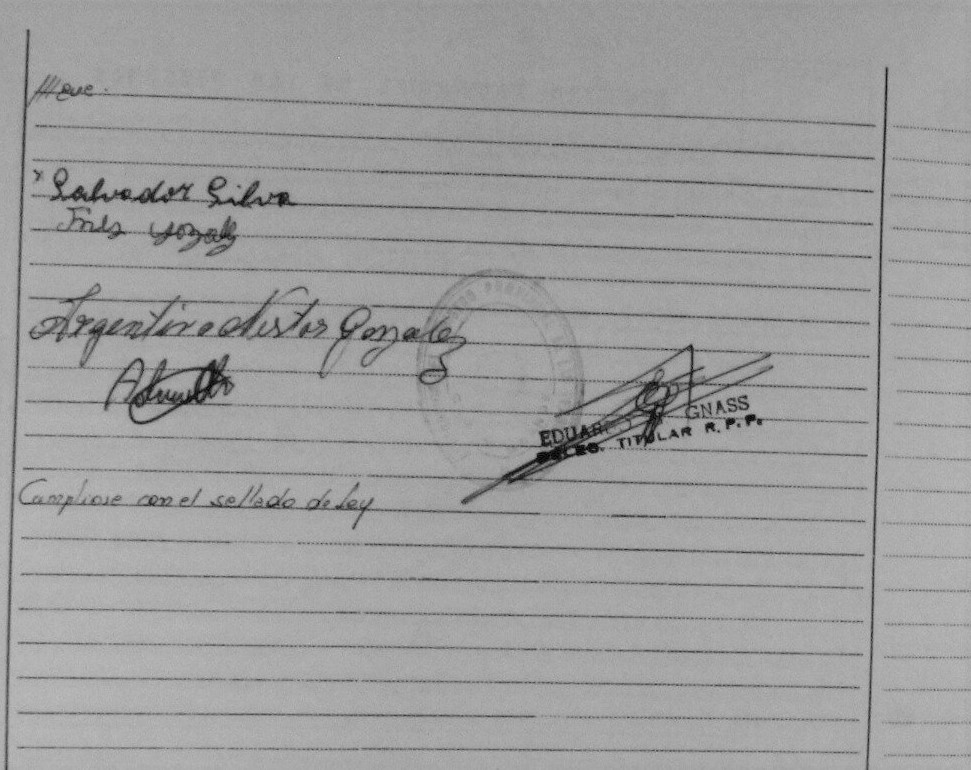 Salvador Silva
Inés Gonzalez
Argentino Nestor Gonzalez
EDUAR GNASS
DELEG. TITULAR R.P.P.
Cumpliose con el sellado de Ley